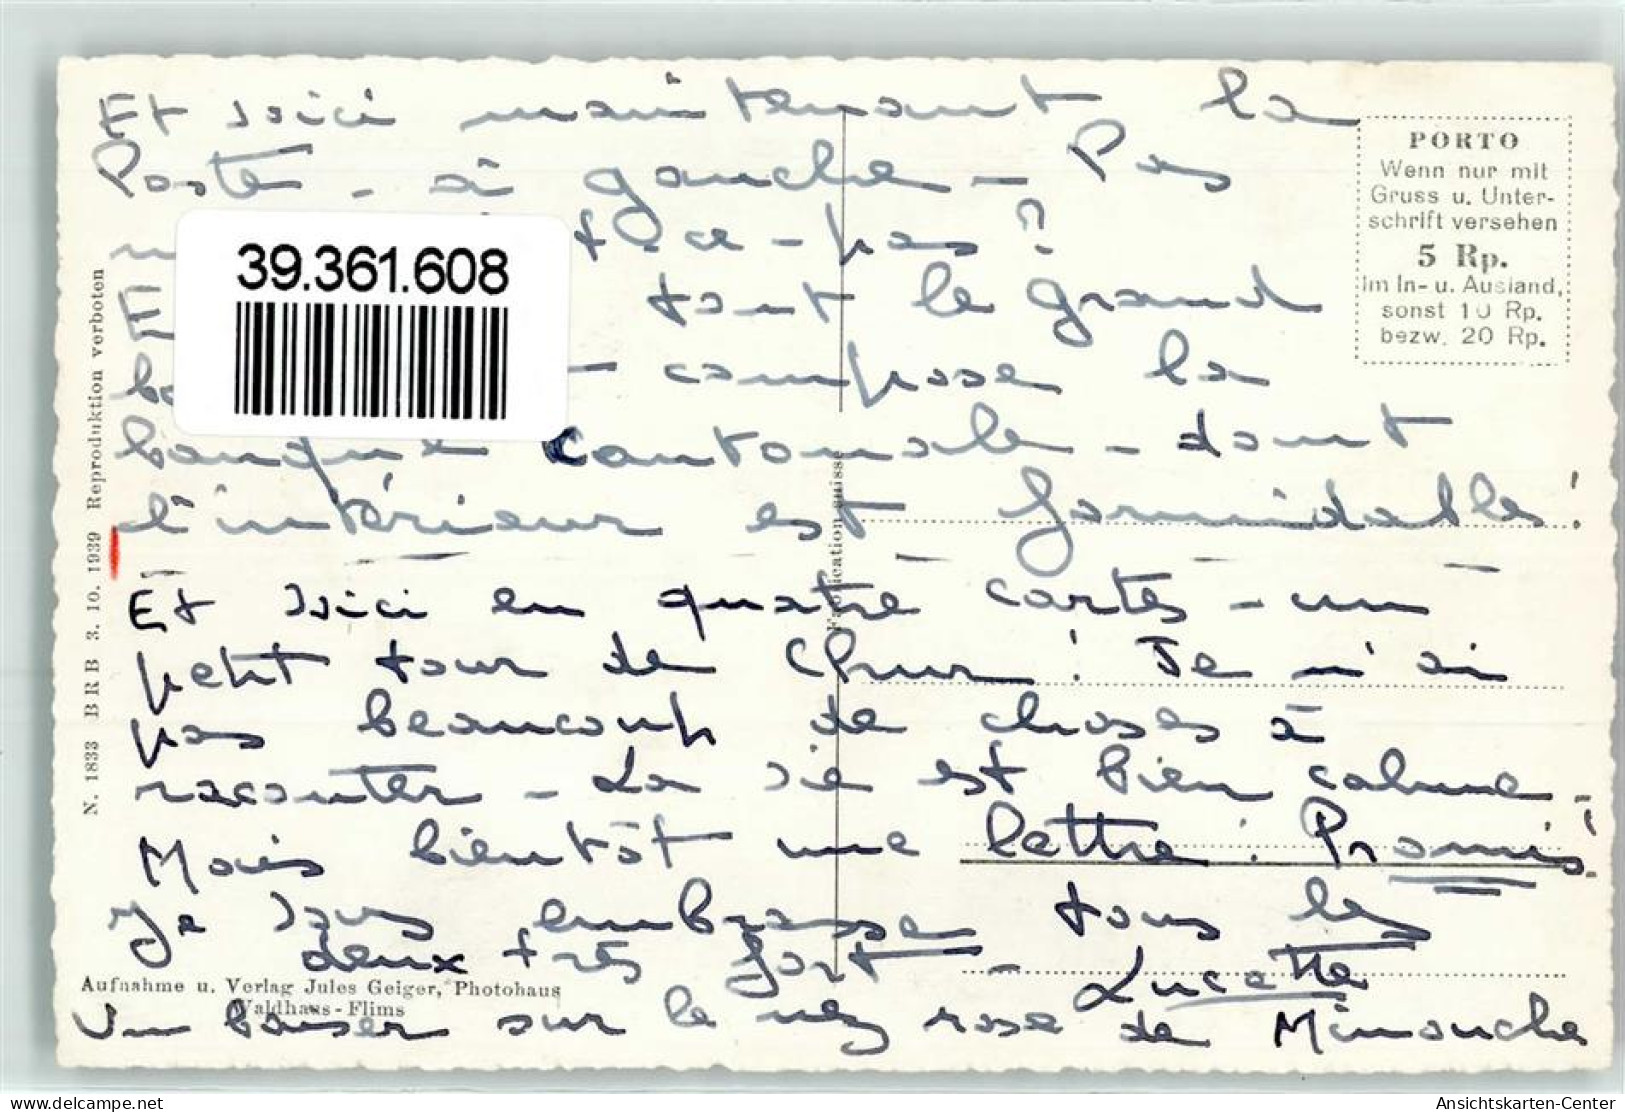 Et voici maintenant la
Poste - à gauche - Pas
t-ce-pas?
E tout le grand
ba - compose la
banque cantonale - dont
l'intérieur est formidable!
Et voici en quatre cartes - un
petit tour de Chur! Je n'ai
pas beaucoup de choses à
raconter - La vie est bien calme -
Mais bientôt une lettre! Promis!
Je vous embrasse tous les
deux très fort -
Lucette
Un baiser sur le nez rose de Minouche
PORTO
Wenn nur mit
Gruss u. Unter-
schrift versehen
5 Rp.
im In- u. Ausland,
sonst 10 Rp.
bezw. 20 Rp.
39.361.608
N. 1833 BRB 3. 10. 1939 Reproduktion verboten
Fabrication suisse
Aufnahme u. Verlag Jules Geiger, Photohaus
Waldhaus-Flims
www.delcampe.net
Ansichtskarten-Center